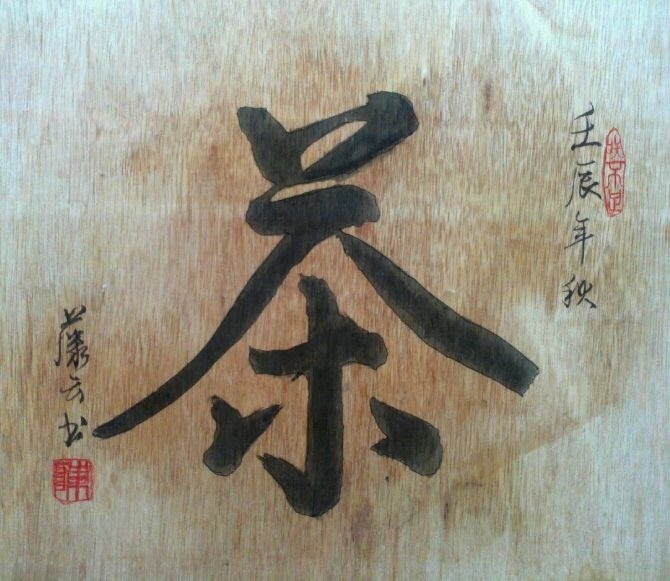 壬辰年秋
茶
藤云书